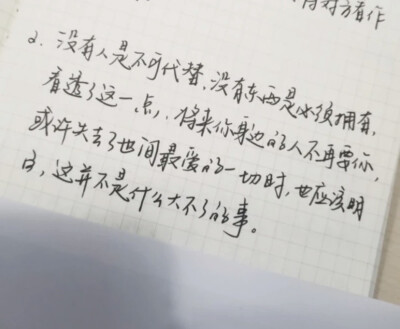 对方有作
2. 没有人是不可代替,没有东西是必须拥有,
看透了这一点,将来你身边的人不再要你,
或许失去了世间最爱的一切时,也应该明
白,这并不是什么大不了的事。